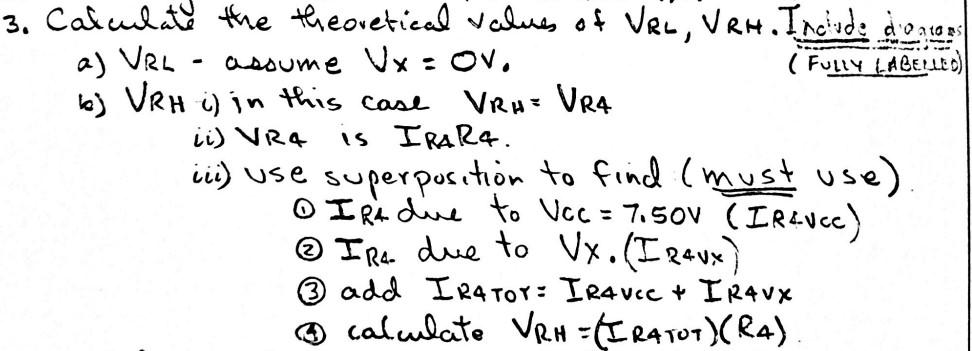 3. Calculate the theoretical values of VRL, VRH. Include diagrams
(FULLY LABELLED)
a) VRL - assume Vx = 0V.
b) VRH i) in this case VRH = VR4
ii) VR4 is IR4R4.
iii) use superposition to find (must use)
① IR4 due to Vcc = 7.50V (IR4Vcc)
② IR4 due to Vx. (IR4Vx)
③ add IR4TOT = IR4Vcc + IR4Vx
④ calculate VRH = (IR4TOT)(R4)